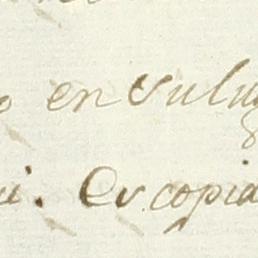 en vulg
i. Es copia